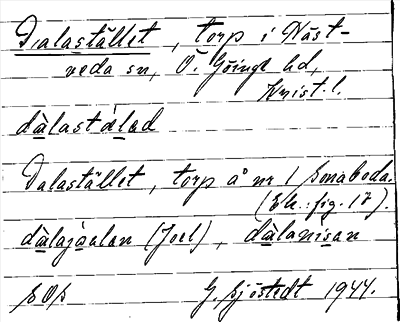 Dalastället, torp i Häst-
veda sn, Ö. Göinge hd,
Krist. l.
dàlastälad
Dalastället, torp å nr 1 Sonaboda.
(Ek. fig. 17).
dàlajoalan (Joel), dàlanisan
SOS G. Sjöstedt 1944.